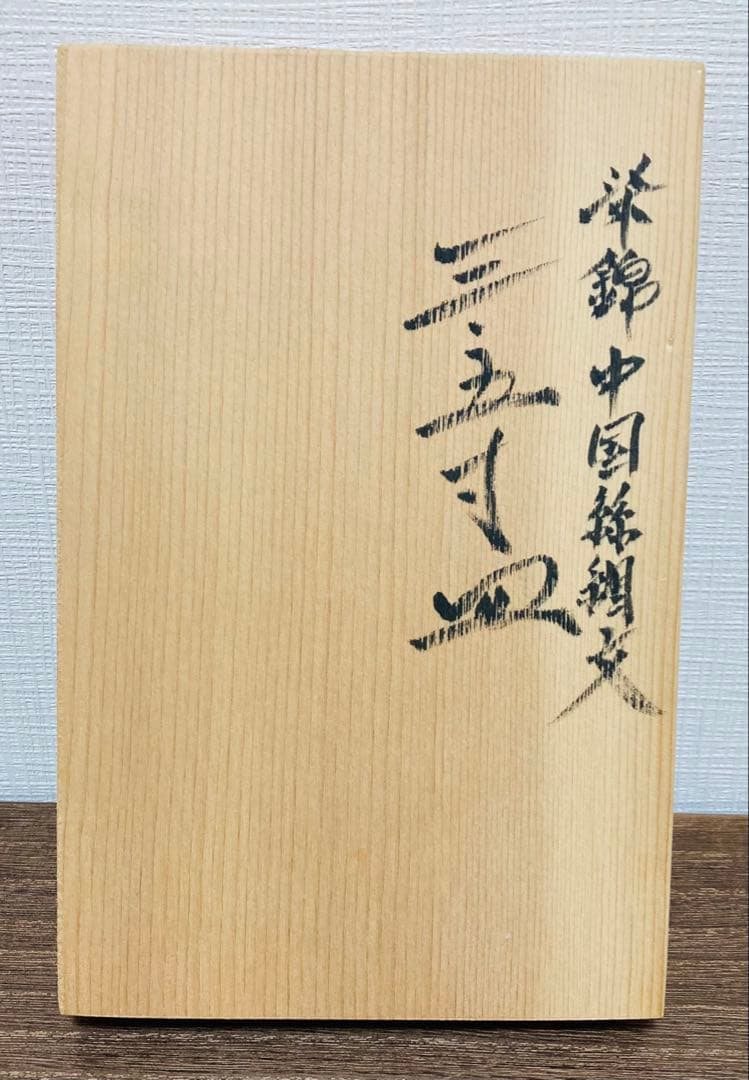 染錦中国絲綢文
三五寸皿